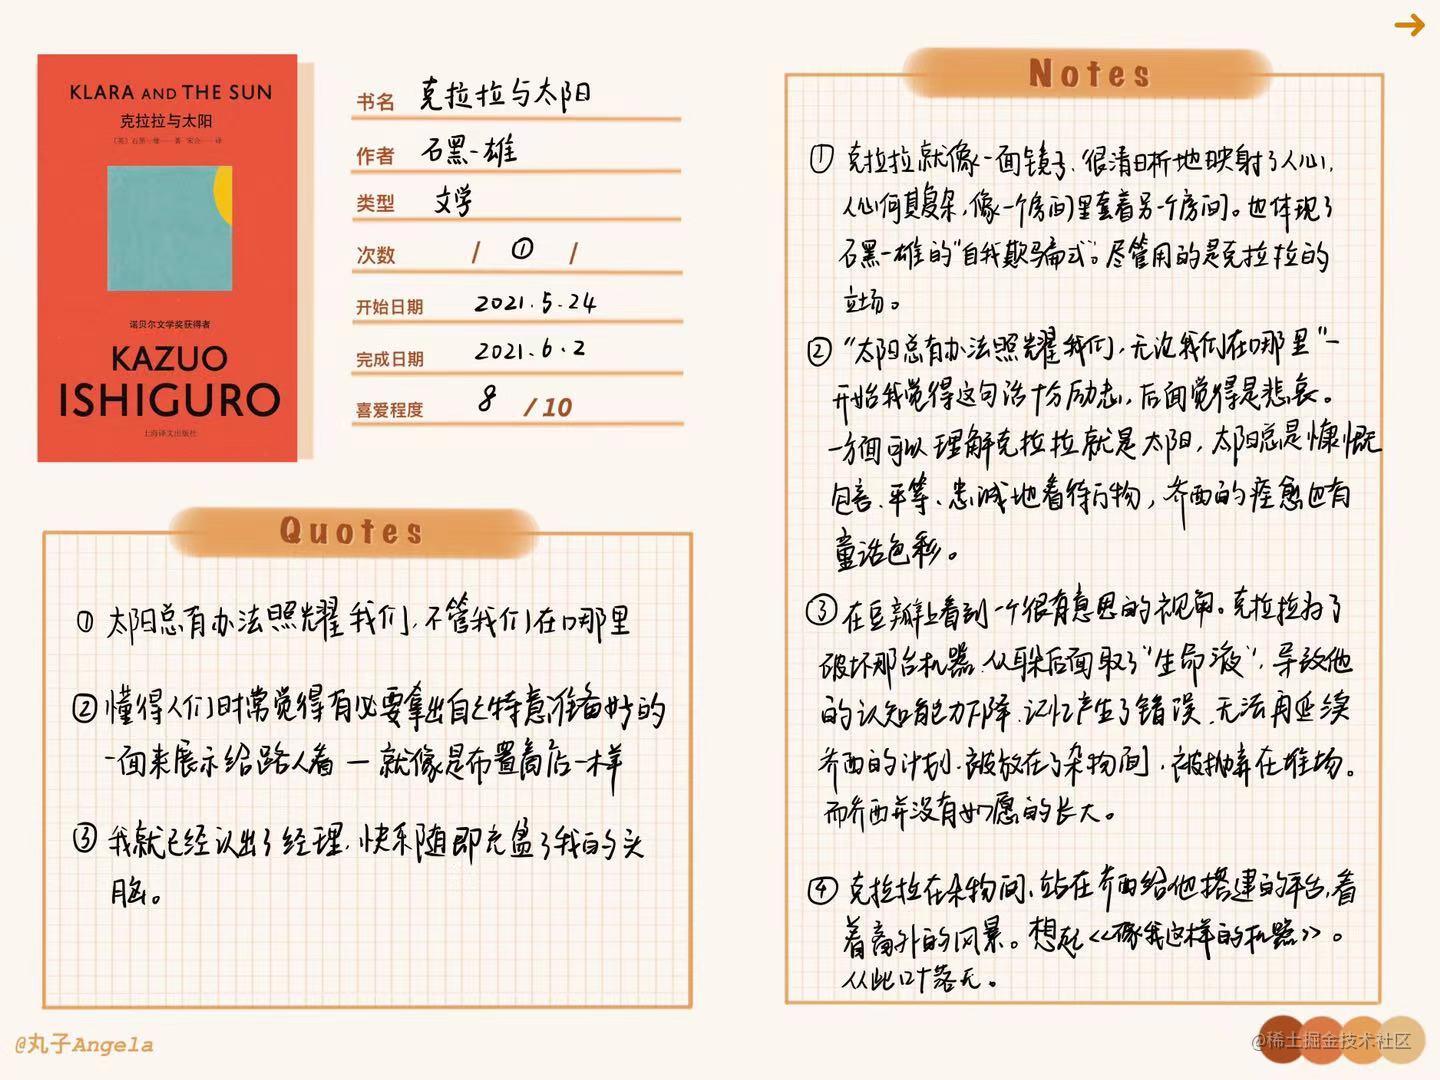 KLARA AND THE SUN
克拉拉与太阳
〔英〕石黑一雄 著 宋佥 译
诺贝尔文学奖获得者
KAZUO
ISHIGURO
上海译文出版社
书名 克拉拉与太阳
作者 石黑一雄
类型 文学
次数 / ① /
开始日期 2021.5.24
完成日期 2021.6.2
喜爱程度 8 /10
Quotes
① 太阳总有办法照耀我们,不管我们在哪里
② 懂得人们时常觉得有必要拿出自己特意准备好的
一面来展示给路人看 — 就像是布置商店一样
③ 我就已经认出了经理,快乐随即充盈了我的头
脑。
Notes
① 克拉拉就像一面镜子,很清晰地映射了人心,
人心何其复杂,像一个房间里套着另一个房间。也体现了
石黑一雄的"自我欺骗式"。尽管用的是克拉拉的
立场。
② "太阳总有办法照耀我们,无论我们在哪里"一
开始我觉得这句话十分励志,后面觉得是悲哀。
一方面可以理解克拉拉就是太阳,太阳总是慷慨
包容、平等、忠诚地看待万物,乔西的痊愈也有
童话色彩。
③ 在豆瓣上看到一个很有意思的视角。克拉拉为了
破坏那台机器,从耳朵后面取了"生命液",导致他
的认知能力下降,记忆产生了错误,无法再延续
乔西的计划,被放在了杂物间,被抛弃在堆场。
而乔西并没有如愿的长大。
④ 克拉拉在杂物间,站在乔西给他搭建的平台,看
着窗外的风景。想起《像我这样的机器》。
从此叶落无。
@丸子Angela
@稀土掘金技术社区